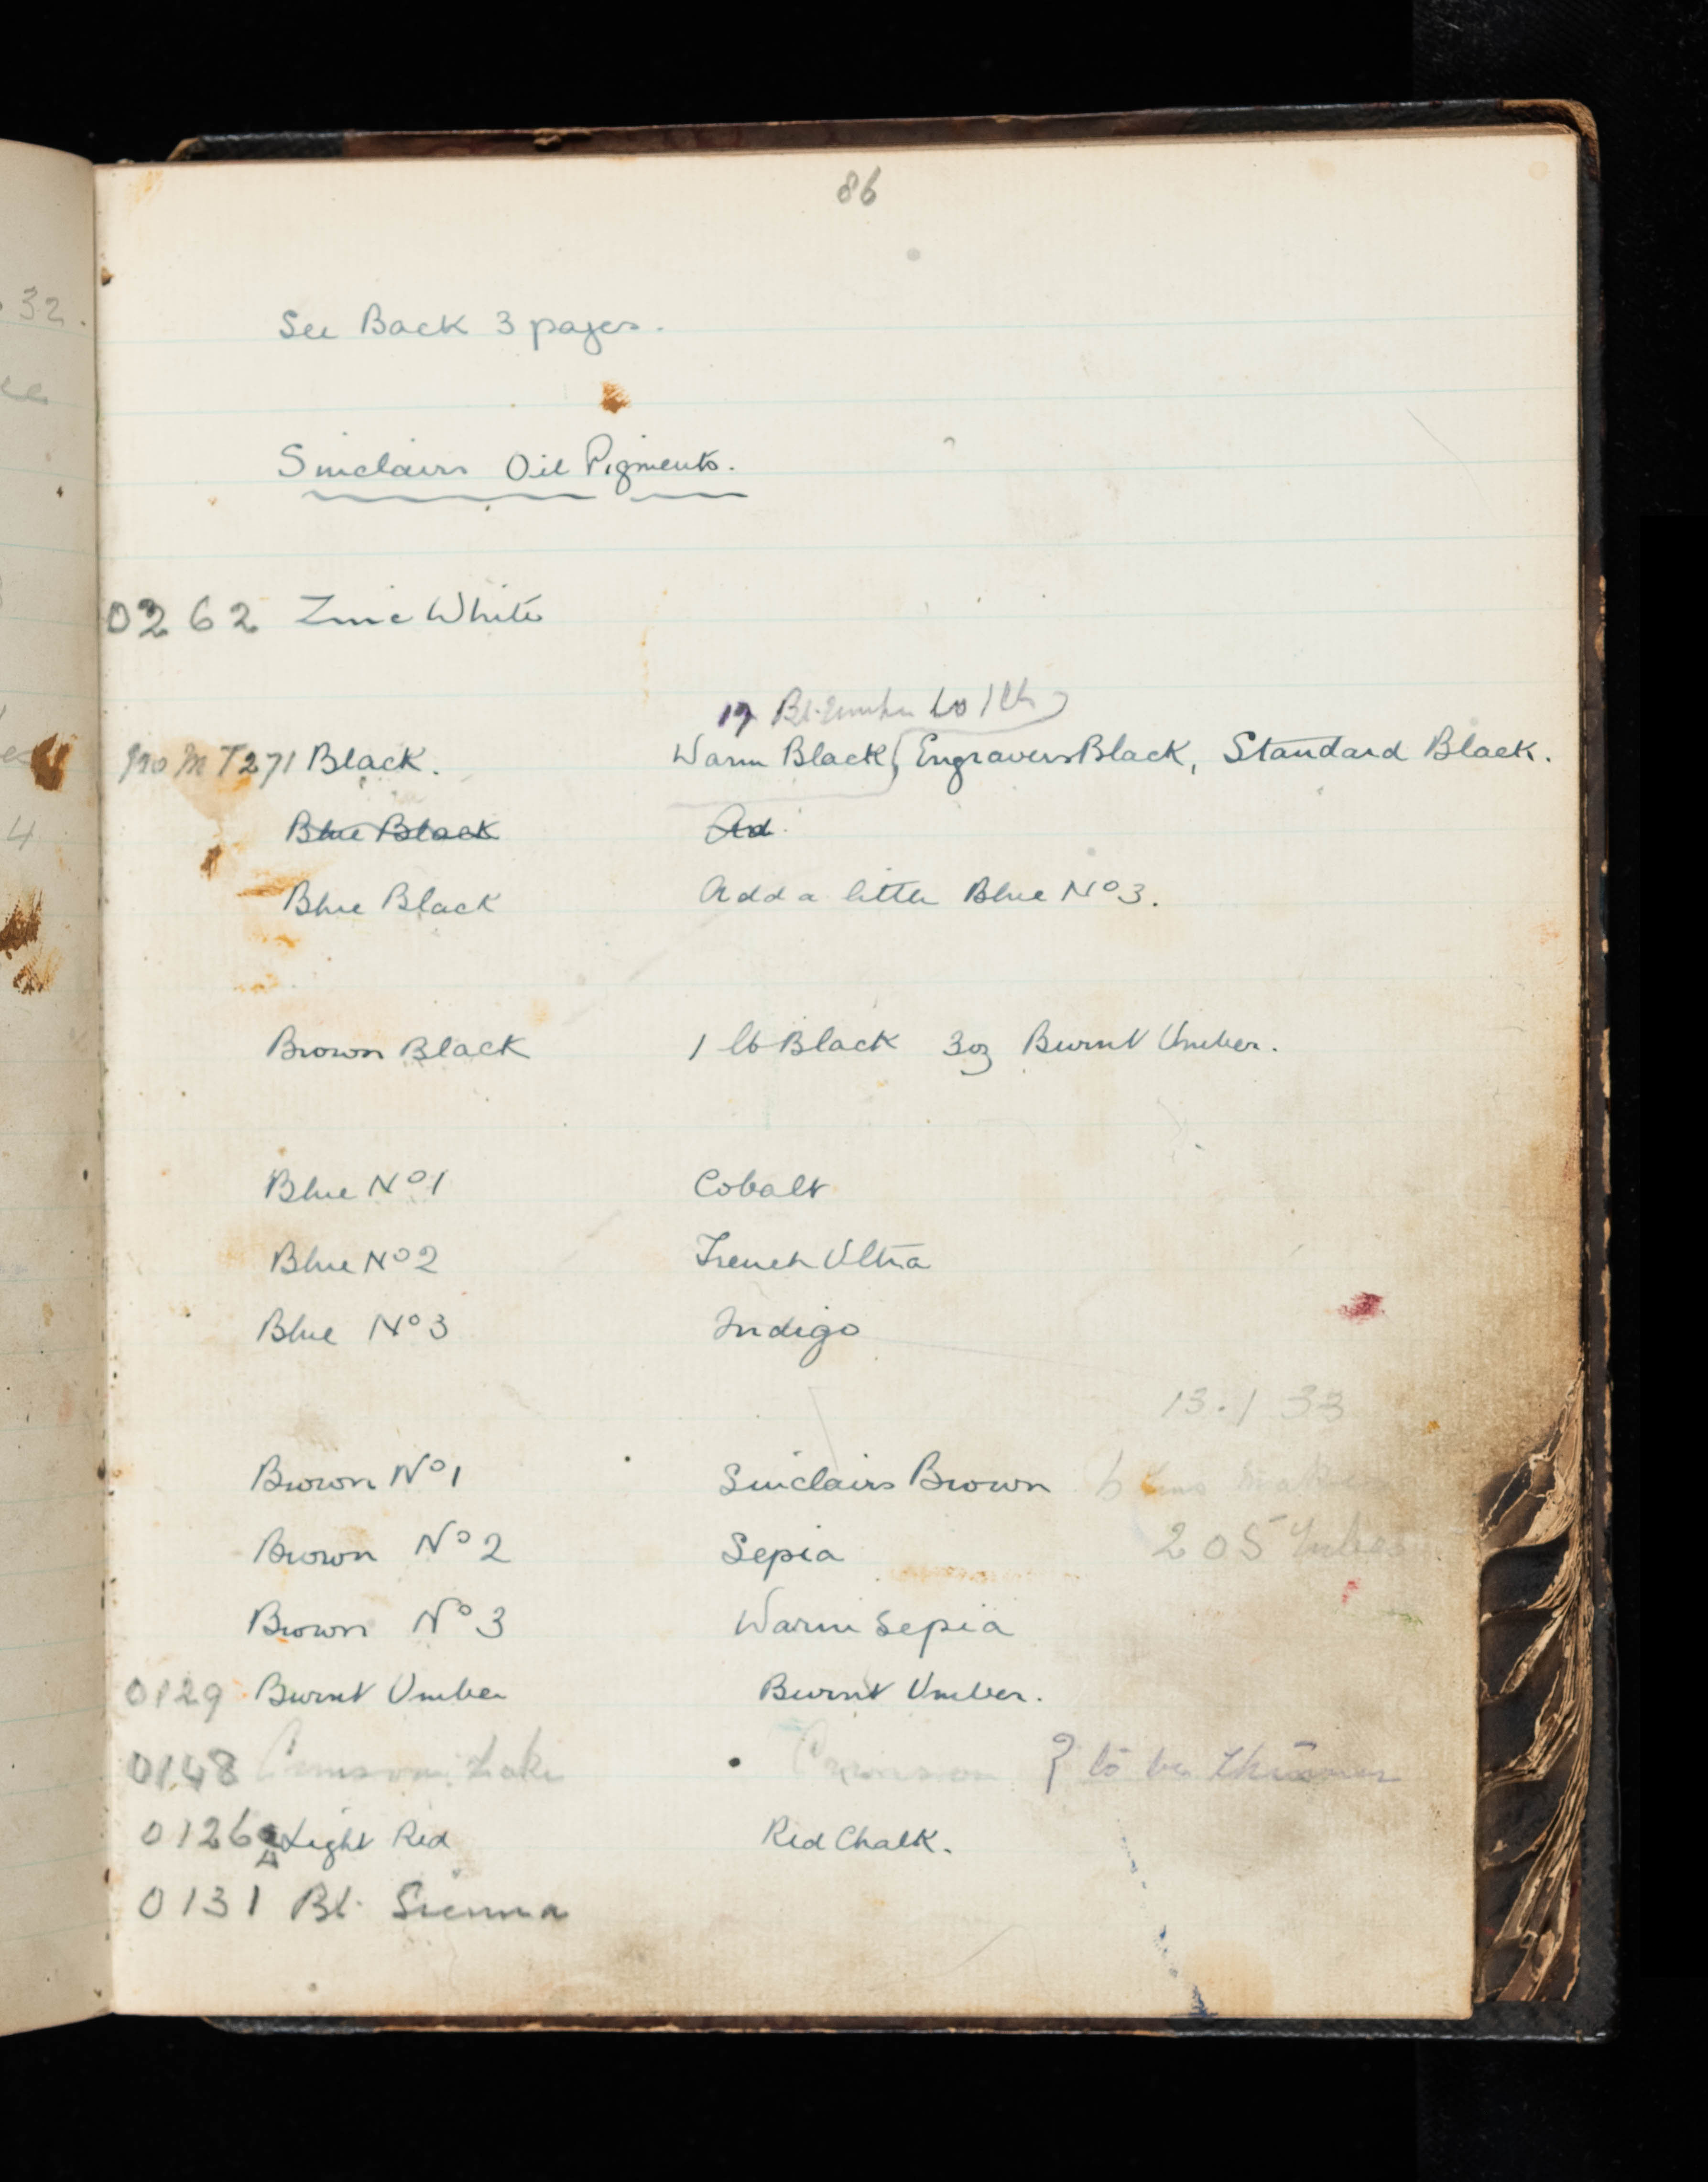 86
32.
See Back 3 pages.
Sinclairs Oil Pigments.
0262 Zinc White
Bt. Umber to 1 lb
T271 Black. Warm Black, Engravers Black, Standard Black.
4
Blue Black Ad
Blue Black Add a little Blue No 3.
Brown Black 1 lb Black 3oz Burnt Umber.
Blue No 1 Cobalt
Blue No 2 French Ultra
Blue No 3 Indigo
13.1 33
Brown No 1 Sinclairs Brown
Brown No 2 Sepia 205 Tubes
Brown No 3 Warm Sepia
0129 Burnt Umber Burnt Umber.
0148 Crimson Lake Crimson ? to be thinner
0126 Light Red Red Chalk.
0131 Bt. Sienna